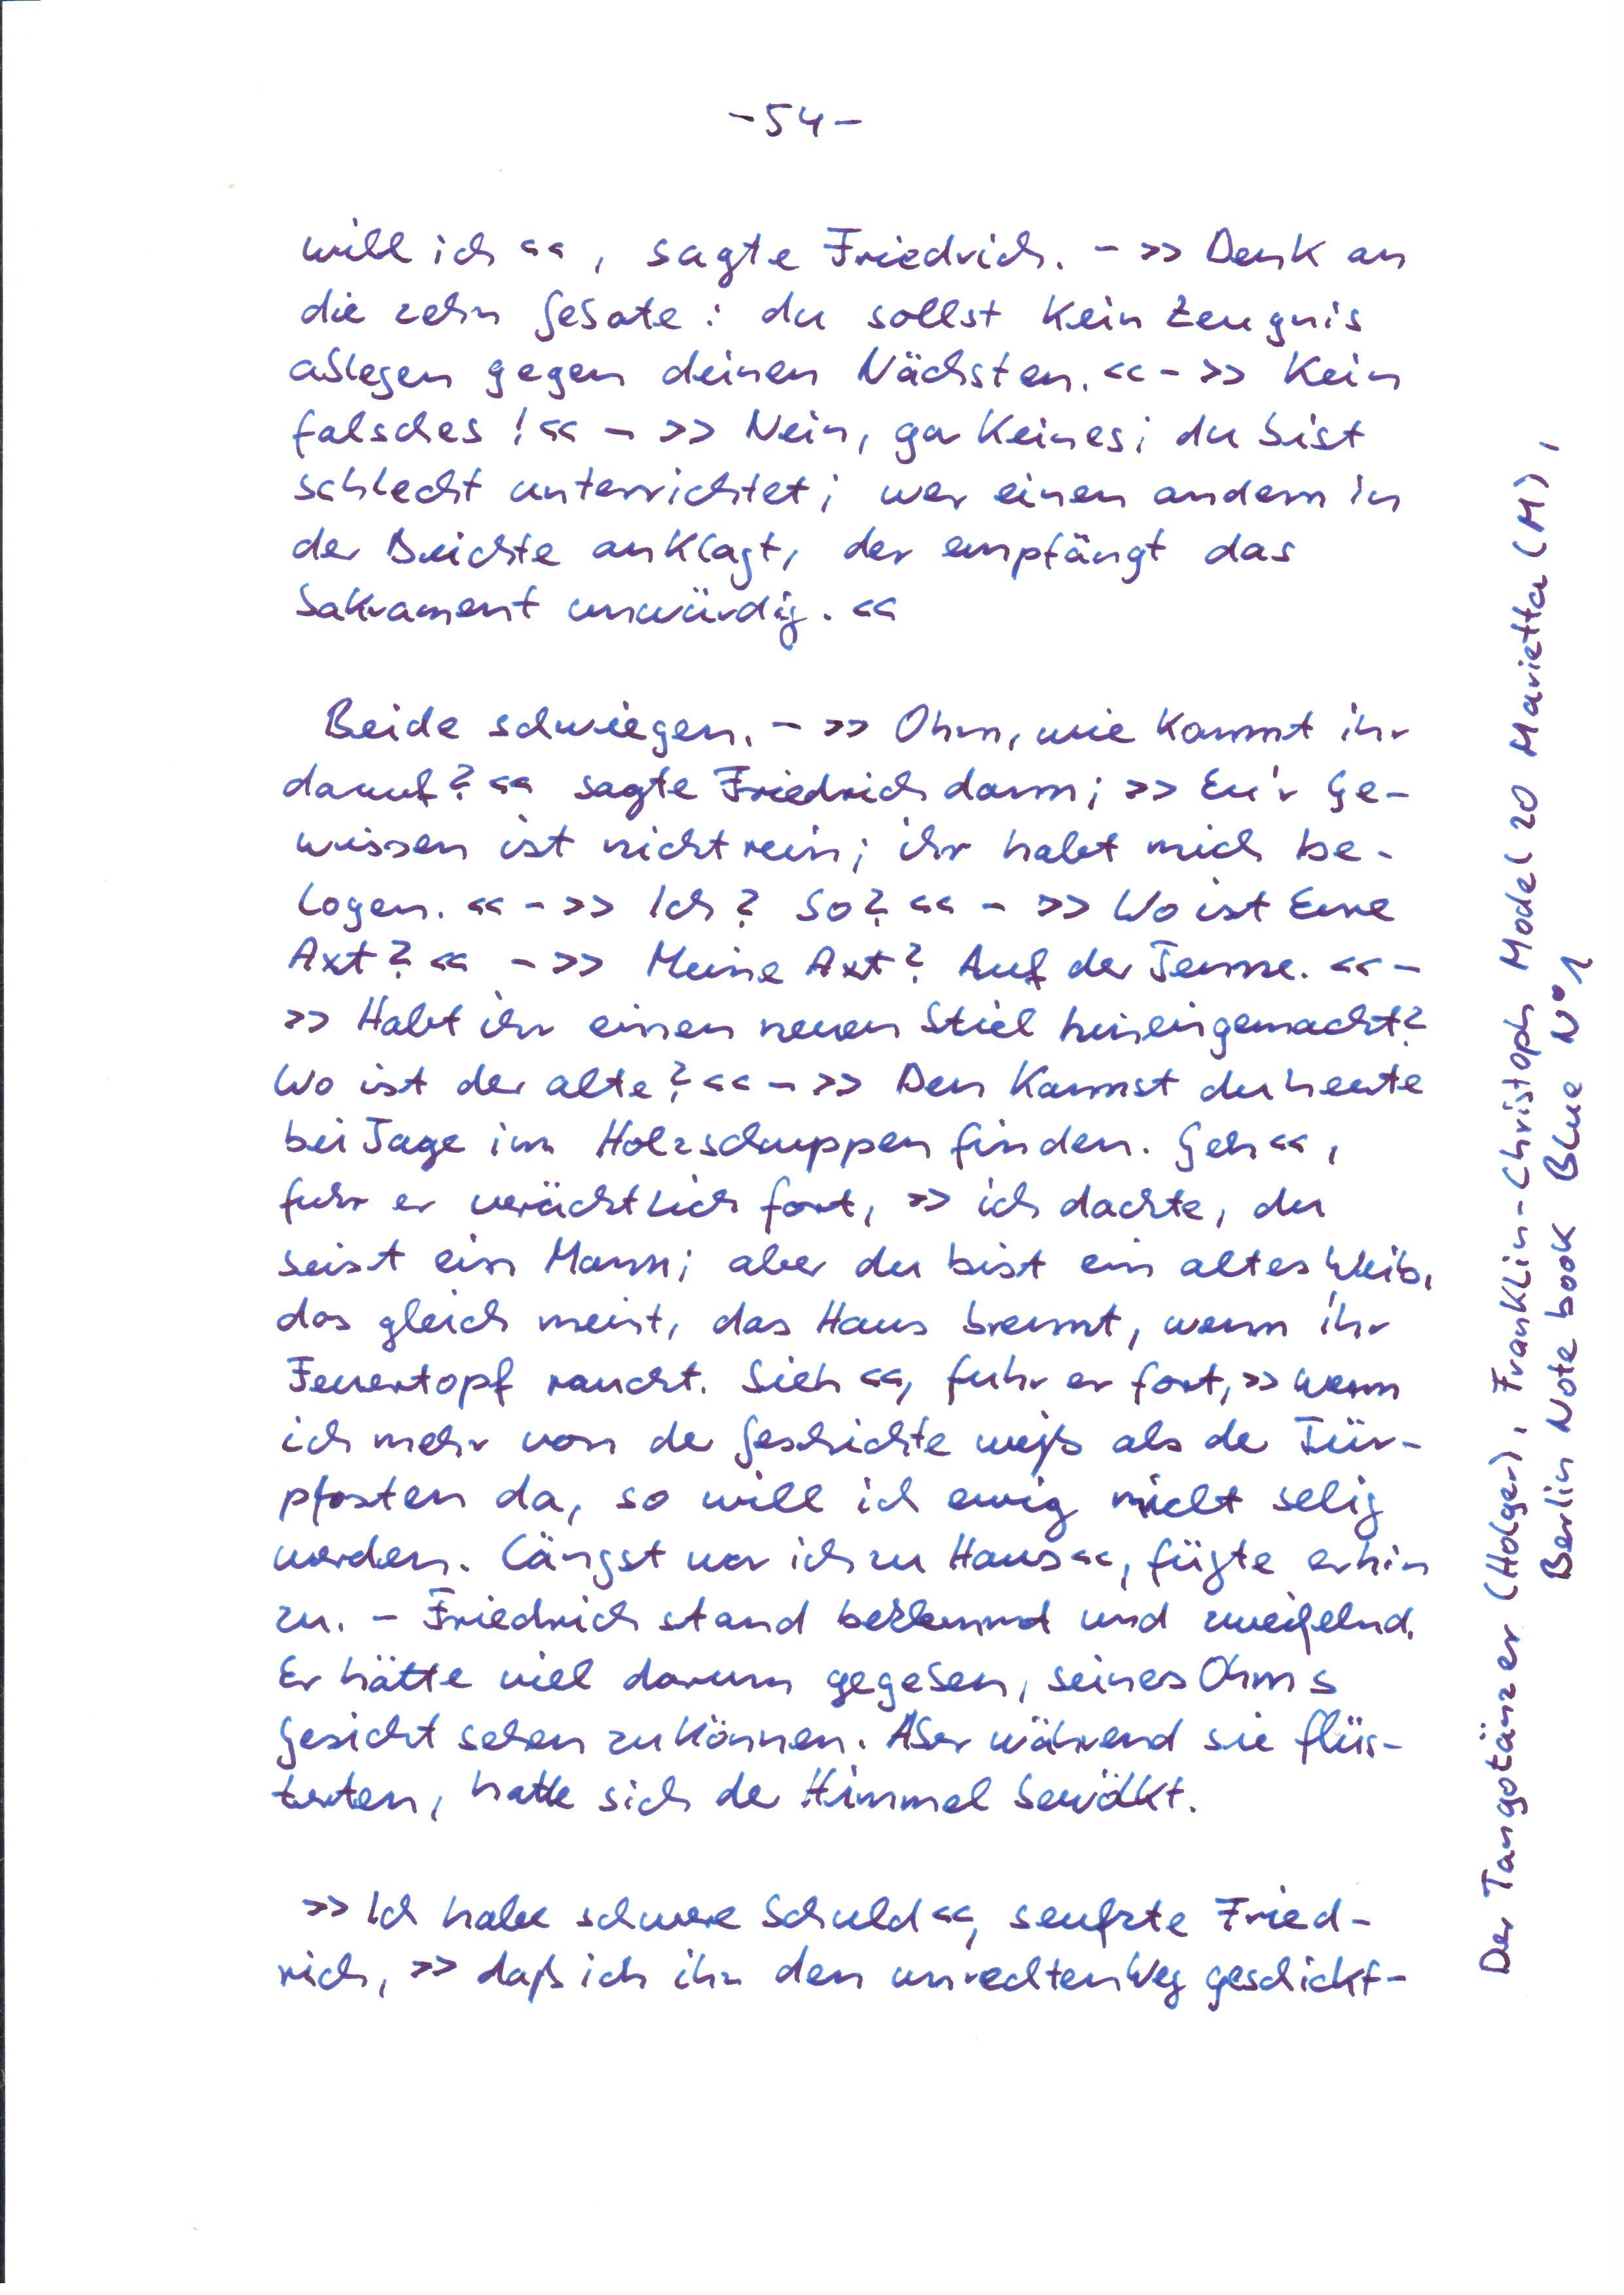 -54-
will ich <<, sagte Friedrich. - >> Denk an
die zehn Gebote: du sollst kein Zeugnis
ablegen gegen deinen Nächsten. << - >> Kein
falsches! << - >> Nein, gar keines; du bist
schlecht unterrichtet; wer einen andern in
der Beichte anklagt, der empfängt das
Sakrament unwürdig. <<
Beide schwiegen. - >> Ohm, wie kommt ihr
darauf? << sagte Friedrich dann; >> Eu'r Ge-
wissen ist nicht rein; ihr habt mich be-
logen. << - >> Ich? So? << - >> Wo ist Eure
Axt? << - >> Meine Axt? Auf der Tenne. << -
>> Habt ihr einen neuen Stiel hineingemacht?
Wo ist der alte? << - >> Den kannst du heute
bei Tage im Holzschuppen finden. Geh <<,
fuhr er verächtlich fort, >> ich dachte, du
seist ein Mann; aber du bist ein altes Weib,
das gleich meint, das Haus brennt, wenn ihr
Feuertopf raucht. Sieh <<, fuhr er fort, >> wenn
ich mehr von der Geschichte weiß als der Tür-
pfosten da, so will ich ewig nicht selig
werden. Längst war ich zu Haus <<, fügte er hin
zu. - Friedrich stand beklemmt und zweifelnd.
Er hätte viel darum gegeben, seines Ohms
Gesicht sehen zu können. Aber während sie flüs-
terten, hatte sich der Himmel bewölkt.
>> Ich habe schwere Schuld <<, seufzte Fried-
rich, >> daß ich ihn den unrechten Weg geschickt-
Der Tangotänzer (Holger), Franklin-Christoph Model 20 Marietta (M),
Berlin Note book Blue N°1